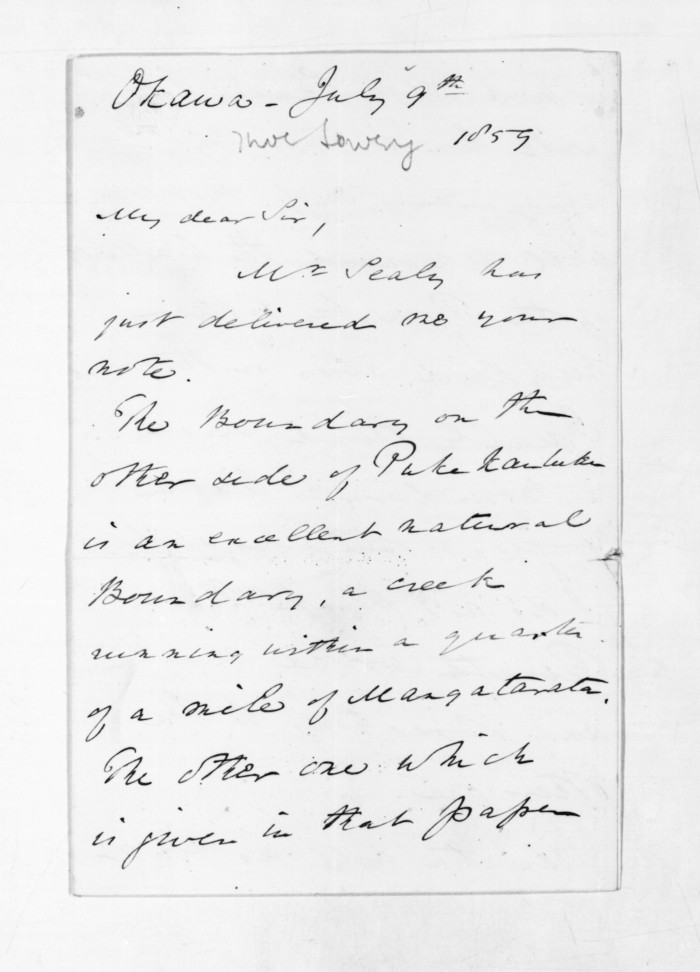 Okawa - July 9th
1859
My dear Sir,
Mr Sealy has
just delivered me your
note.
The Boundary on the
other side of Puke
is an excellent natural
Boundary, a creek
running within a quarter
of a mile of Mangatarata.
The other one which
is given in that paper